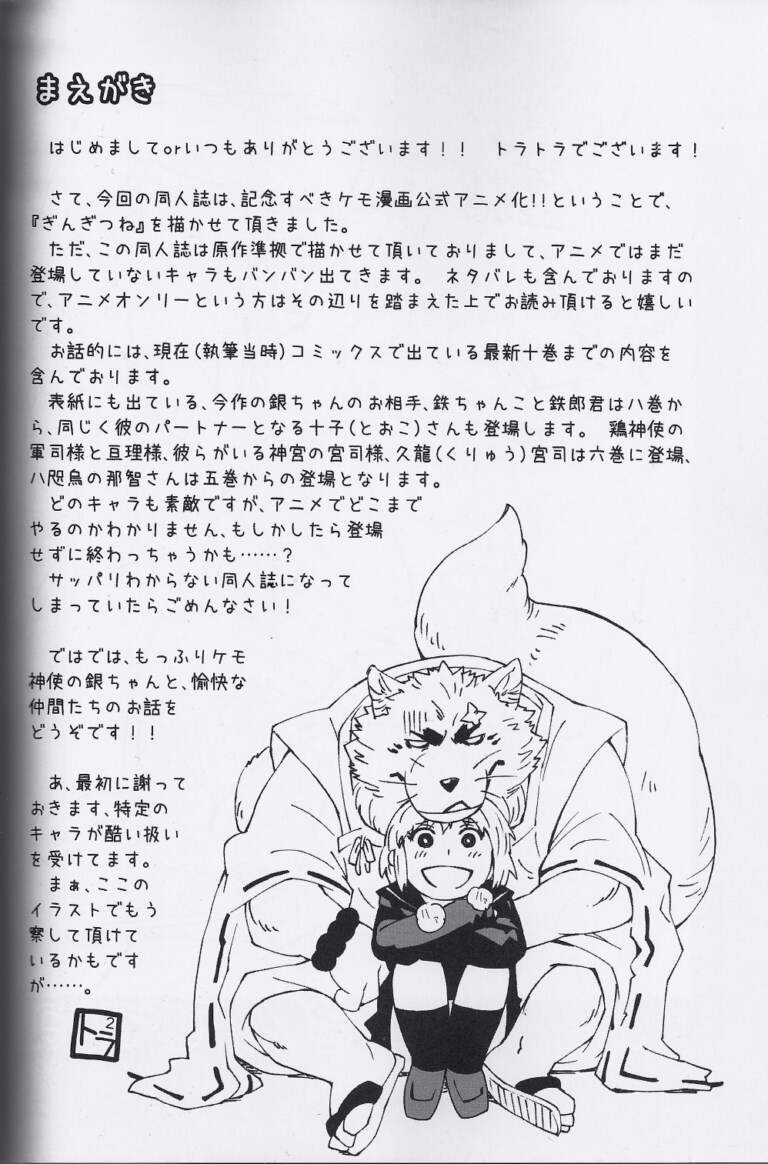 まえがき
はじめましてorいつもありがとうございます！！　トラトラでございます！
さて、今回の同人誌は、記念すべきケモ漫画公式アニメ化!!ということで、
『ぎんぎつね』を描かせて頂きました。
ただ、この同人誌は原作準拠で描かせて頂いておりまして、アニメではまだ
登場していないキャラもバンバン出てきます。　ネタバレも含んでおりますの
で、アニメオンリーという方はその辺りを踏まえた上でお読み頂けると嬉しい
です。
お話的には、現在(執筆当時)コミックスで出ている最新十巻までの内容を
含んでおります。
表紙にも出ている、今作の銀ちゃんのお相手、鉄ちゃんこと鉄郎君は八巻か
ら、同じく彼のパートナーとなる十子(とおこ)さんも登場します。　鶏神使の
軍司様と亘理様、彼らがいる神宮の宮司様、久龍(くりゅう)宮司は六巻に登場、
八咫烏の那智さんは五巻からの登場となります。
どのキャラも素敵ですが、アニメでどこまで
やるのかわかりません、もしかしたら登場
せずに終わっちゃうかも……？
サッパリわからない同人誌になって
しまっていたらごめんなさい！
ではでは、もっふりケモ
神使の銀ちゃんと、愉快な
仲間たちのお話を
どうぞです！！
あ、最初に謝って
おきます、特定の
キャラが酷い扱い
を受けてます。
まぁ、ここの
イラストでもう
察して頂けて
いるかもです
が……。
トラ2